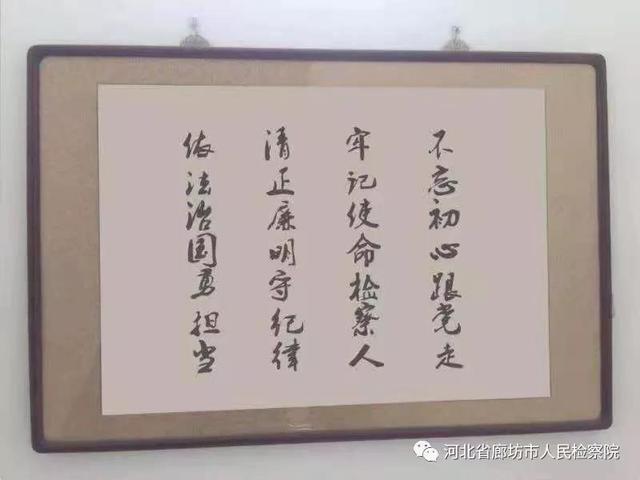 不忘初心跟党走
牢记使命检察人
清正廉明守纪律
依法治国勇担当
河北省廊坊市人民检察院